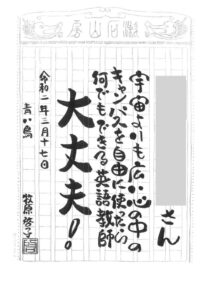 漱石山房
さん
宇宙よりも広い心の中の
キャンバスを自由に使ったら
何でもできる英語教師
大丈夫!
令和二年三月十七日
青い鳥
牧原